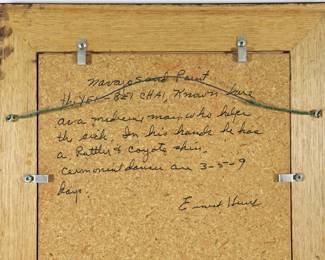 Navajo Sand Paint
the YEI-BEI CHAI, Known here
as a medicine man, who helps
the sick. In his hands he has
a Rattle & coyote skin.
cermonial dances are 3-5-9
Days.
Ernest